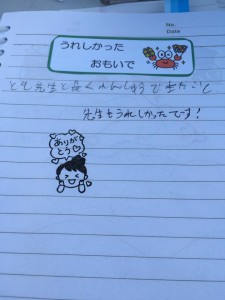 No.
Date
うれしかった
おもいで
とも先生と長くれんしゅうできたこと
先生もうれしかったです！
ありが
とう